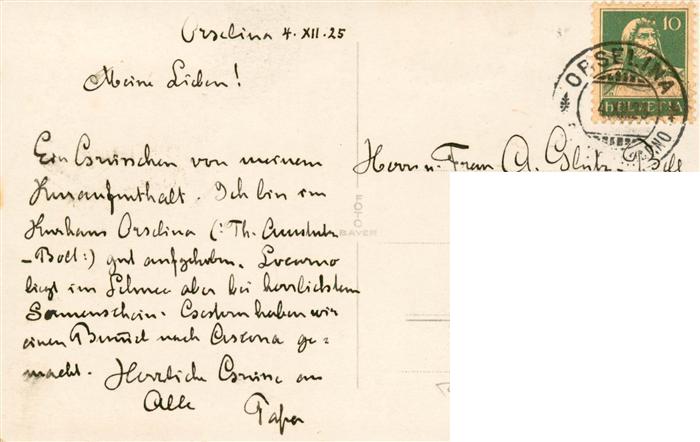 Orselina 4. XII. 25
Meine Lieben!
Ein Grüsschen von meinem
Kuraufenthalt. Ich bin im
Kurhaus Orselina (: Th. Amstutz
- Bolt :) gut aufgehoben. Locarno
liegt im Schnee aber bei herrlichstem
Sonnenschein. Gestern haben wir
einen Bummel nach Ascona ge=
macht. Herzliche Grüsse an
Alle
Papa
Herrn u. Frau A. Glutz-
FOTO
BAYER
10
HELVETIA
ORSELINA